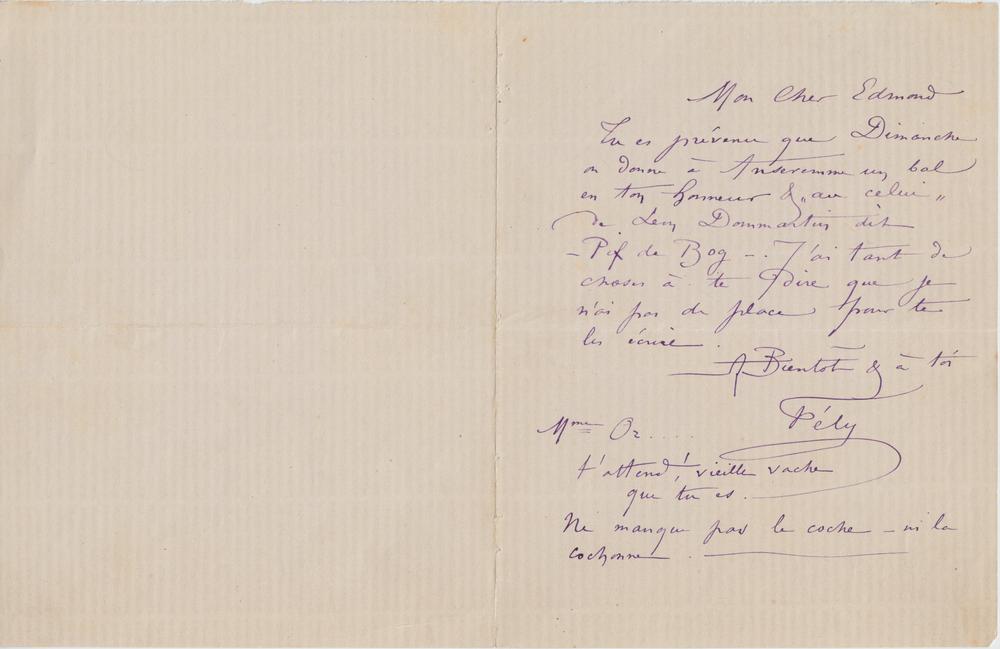 Mon Cher Edmond
Tu es prévenu que Dimanche
on donne à Anseremme un bal
en ton honneur & „au celui„
de Léon Dommartin dit
– Pif de Bog –. J'ai tant de
choses à te dire que je
n'ai pas de place pour te
les écrire.
A Bientôt & à toi
Pély
Mme Oz.....
t'attend, vieille vache
que tu es.
Ne manque pas le coche – ni la
cochonne.